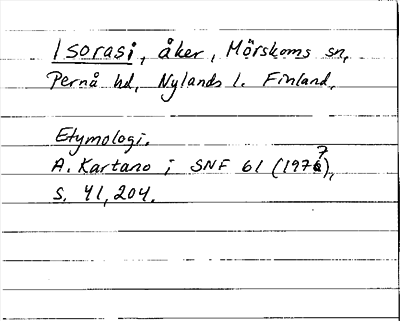 Isorasi, åker, Mörskoms sn,
Pernå hd, Nylands l. Finland,
Etymologi.
A. Kartano i SNF 61 (1977),
s. 41, 204.